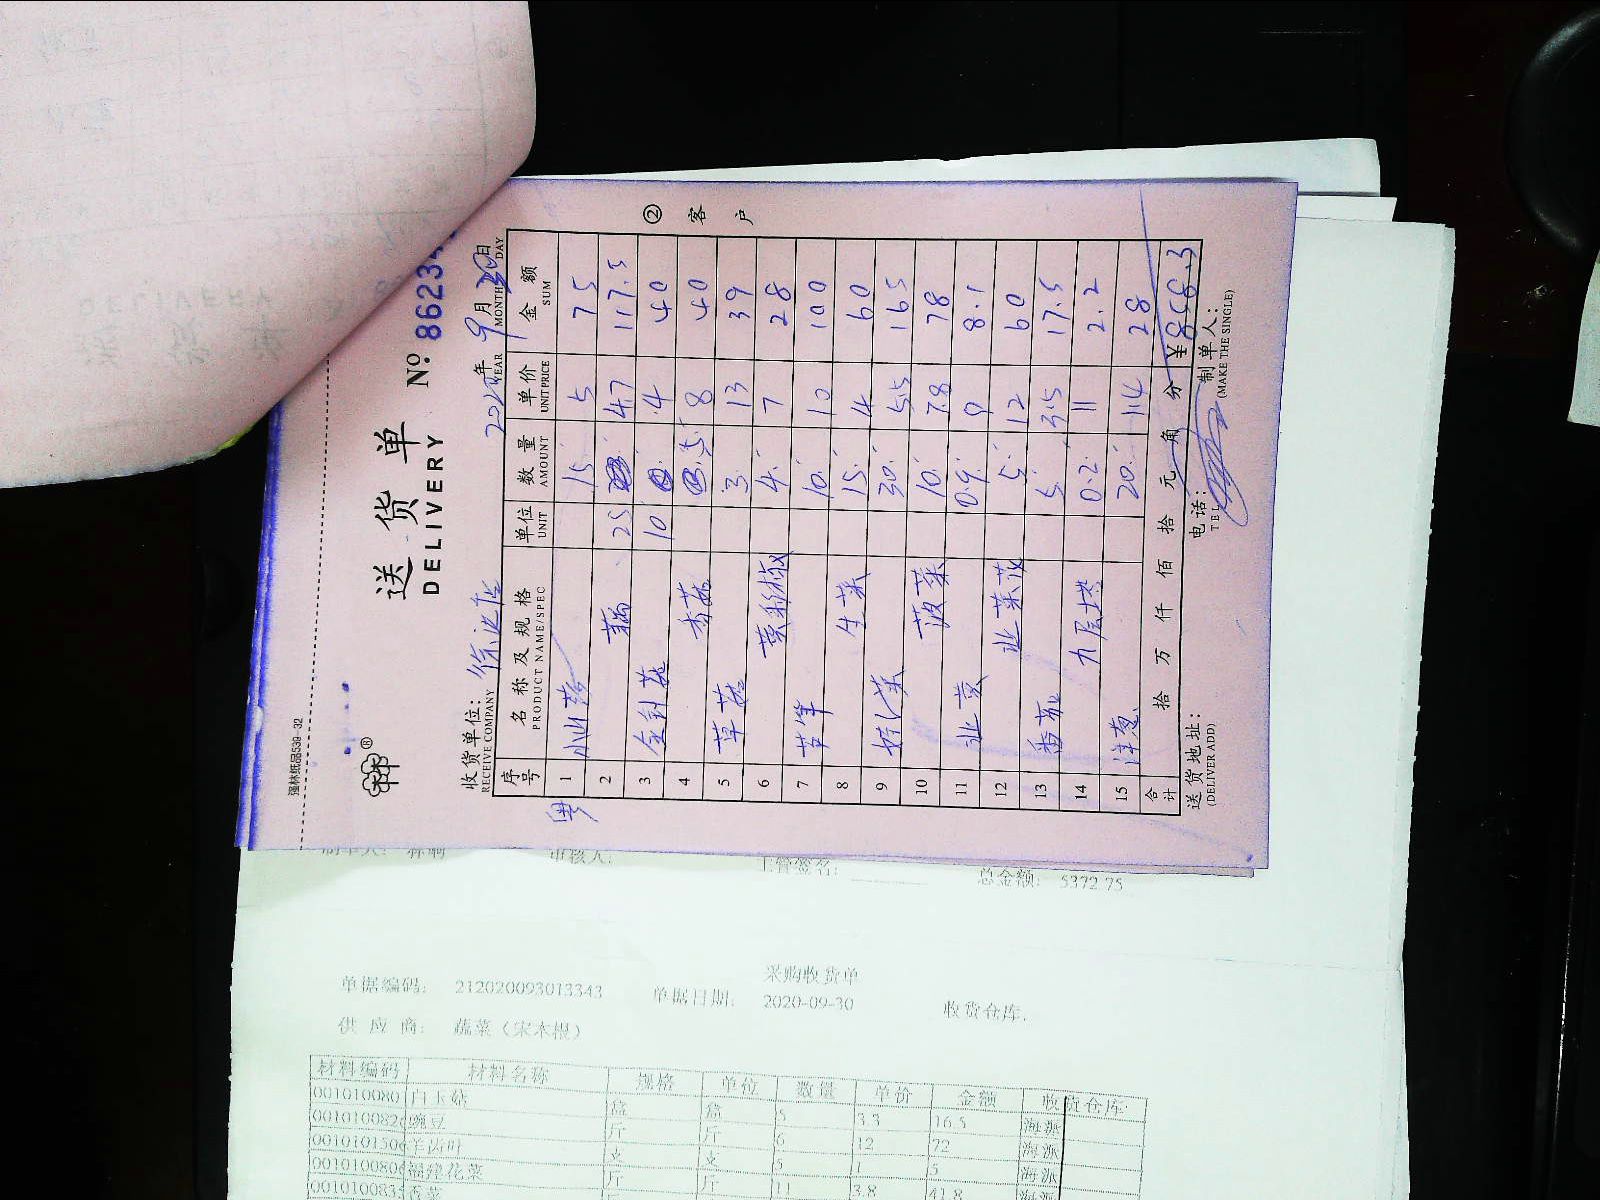 强林纸品539-32
送 货 单
DELIVERY
№ 8623
② 客 户
收货单位:
RECEIVE COMPANY
年 9月30日
YEAR MONTH DAY
序号 名 称 及 规 格 单位 数 量 单 价 金 额
PRODUCT NAME/SPEC UNIT AMOUNT UNIT PRICE SUM
1 15 5 75
2 藕 25 4.7 117.5
3 金针菇 10 4 40
4 香菇 5 8 40
5 草菇 3 13 39
6 菜椒 4 7 28
7 芦笋 10 10 100
8 生菜 15 4 60
9 30 5.5 165
10 菠菜 10 7.8 78
11 韭黄 0.9 9 8.1
12 韭菜花 5 12 60
13 5 3.5 17.5
14 九层塔 0.2 11 2.2
15 洋葱 20 1.4 28
合计 拾 万 仟 佰 拾 元 角 分 ¥858.3
送货地址:
(DELIVER ADD)
电话:
TEL
制单人:
(MAKE THE SINGLE)
制单人: 审核人: 主管签名: 总金额: 5372.75
采购收货单
单据编码: 212020093013343 单据日期: 2020-09-30 收货仓库:
供 应 商: 蔬菜(宋木根)
材料编码 材料名称 规格 单位 数量 单价 金额 收货仓库:
001010080 白玉菇 盒 盒 5 3.3 16.5 海派
001010082 豌豆 斤 斤 6 12 72 海派
001010150 羊齿叶 支 支 5 1 5 海派
001010080 福建花菜 斤 斤 11 3.8 41.8 海派